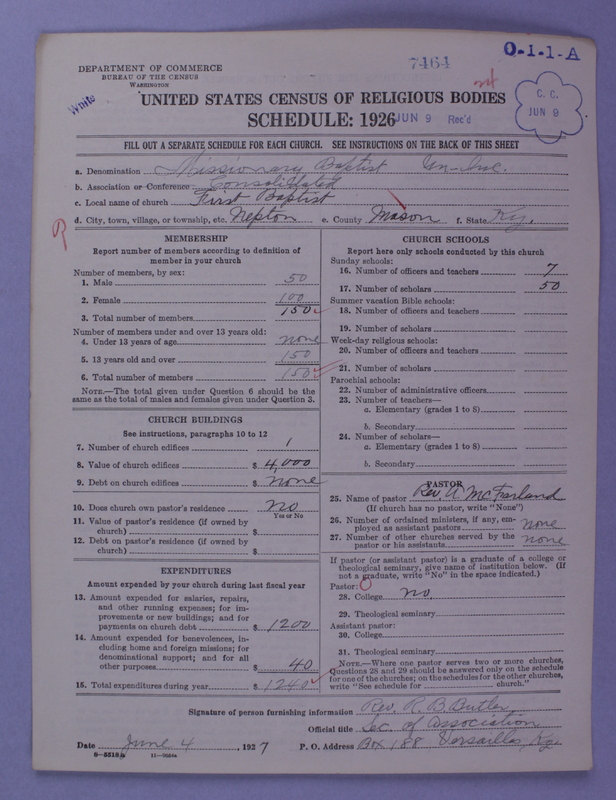 DEPARTMENT OF COMMERCE
BUREAU OF THE CENSUS
WASHINGTON
7464
O-1-1-A
White
C. C.
JUN 9
UNITED STATES CENSUS OF RELIGIOUS BODIES
SCHEDULE: 1926
JUN 9 Rec'd
FILL OUT A SEPARATE SCHEDULE FOR EACH CHURCH. SEE INSTRUCTIONS ON THE BACK OF THIS SHEET
a. Denomination Missionary Baptist
b. Association or Conference: Consolidated
c. Local name of church First Baptist
d. City, town, village, or township, etc. Nepton e. County Mason f. State Ky.
MEMBERSHIP
Report number of members according to definition of
member in your church
Number of members, by sex:
1. Male 50
2. Female 100
3. Total number of members 150
Number of members under and over 13 years old:
4. Under 13 years of age none
5. 13 years old and over 150
6. Total number of members 150
NOTE.—The total given under Question 6 should be the
same as the total of males and females given under Question 3.
CHURCH BUILDINGS
See instructions, paragraphs 10 to 12
7. Number of church edifices 1
8. Value of church edifices $ 4,000
9. Debt on church edifices $ none
10. Does church own pastor's residence no
Yes or No
11. Value of pastor's residence (if owned by
church) $
12. Debt on pastor's residence (if owned by
church) $
EXPENDITURES
Amount expended by your church during last fiscal year
13. Amount expended for salaries, repairs,
and other running expenses; for im-
provements or new buildings; and for
payments on church debt $ 1200
14. Amount expended for benevolences, in-
cluding home and foreign missions; for
denominational support; and for all
other purposes $ 40
15. Total expenditures during year $ 1240
CHURCH SCHOOLS
Report here only schools conducted by this church
Sunday schools:
16. Number of officers and teachers 7
17. Number of scholars 50
Summer vacation Bible schools:
18. Number of officers and teachers
19. Number of scholars
Week-day religious schools:
20. Number of officers and teachers
21. Number of scholars
Parochial schools:
22. Number of administrative officers
23. Number of teachers—
a. Elementary (grades 1 to 8)
b. Secondary
24. Number of scholars—
a. Elementary (grades 1 to 8)
b. Secondary
PASTOR
25. Name of pastor Rev. A McFarland
(If church has no pastor, write "None")
26. Number of ordained ministers, if any, em-
ployed as assistant pastors none
27. Number of other churches served by the
pastor or his assistants none
If pastor (or assistant pastor) is a graduate of a college or
theological seminary, give name of institution below. (If
not a graduate, write "No" in the space indicated.)
Pastor: O
28. College no
29. Theological seminary
Assistant pastor:
30. College
31. Theological seminary
NOTE.—Where one pastor serves two or more churches,
Questions 28 and 29 should be answered only on the schedule
for one of the churches; on the schedules for the other churches,
write "See schedule for church."
Signature of person furnishing information Rev. R. B. Butler,
Official title Sec. of Association
Date June 4, 1927 P. O. Address Box 188 Versailles, Ky.